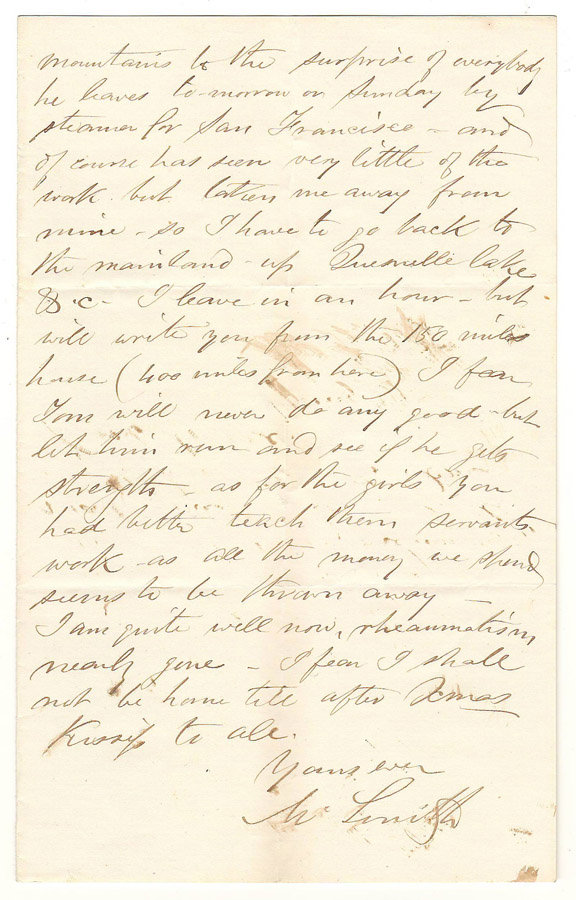 mountains to the surprise of everybody
he leaves to-morrow on Sunday by
steamer for San Francisco - and
of course has seen very little of the
work but taken me away from
mine - so I have to go back to
the mainland - up Quesnelle lake
&c - I leave in an hour - but
will write you from the 150 miles
house (400 miles from here) I fear
Tom will never do any good - but
let him run and see if he gets
strength - as for the girls you
had better teach them servants
work - as all the money we spend
seems to be thrown away -
I am quite well now, rheaumatism
nearly gone - I fear I shall
not be home till after Xmas
Kisses to all.
Yours ever
Smith